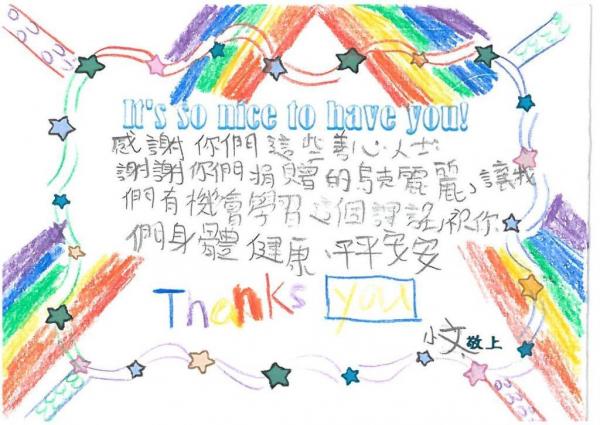 It's so nice to have you!
感謝你們這些善心人士
謝謝你們捐贈的烏克麗麗,讓我
們有機會學習這個課程,祝你
們身體健康、平平安安
Thanks you
小文敬上